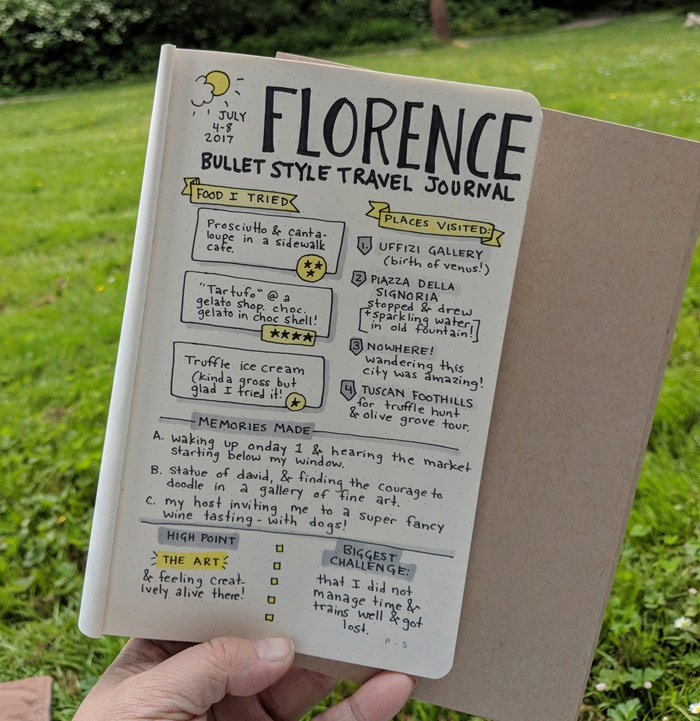 JULY
4-8
2017
FLORENCE
BULLET STYLE TRAVEL JOURNAL
FOOD I TRIED
Prosciutto & canta-
loupe in a sidewalk
cafe.
"Tartufo" @ a
gelato shop. choc.
gelato in choc shell!
Truffle ice cream
(kinda gross but
glad I tried it!
PLACES VISITED:
1. UFFIZI GALLERY
(birth of venus!)
2 PIAZZA DELLA
SIGNORIA
stopped & drew
+sparkling water
in old fountain!
3 NOWHERE!
wandering this
city was amazing!
4 TUSCAN FOOTHILLS
for truffle hunt
& olive grove tour.
MEMORIES MADE
A. waking up onday 1 & hearing the market
starting below my window.
B. statue of david, & finding the courage to
doodle in a gallery of fine art.
C. my host inviting me to a super fancy
wine tasting - with dogs!
HIGH POINT
THE ART
& feeling creat-
ively alive there!
BIGGEST
CHALLENGE:
that I did not
manage time &
trains well & got
lost.
P-S